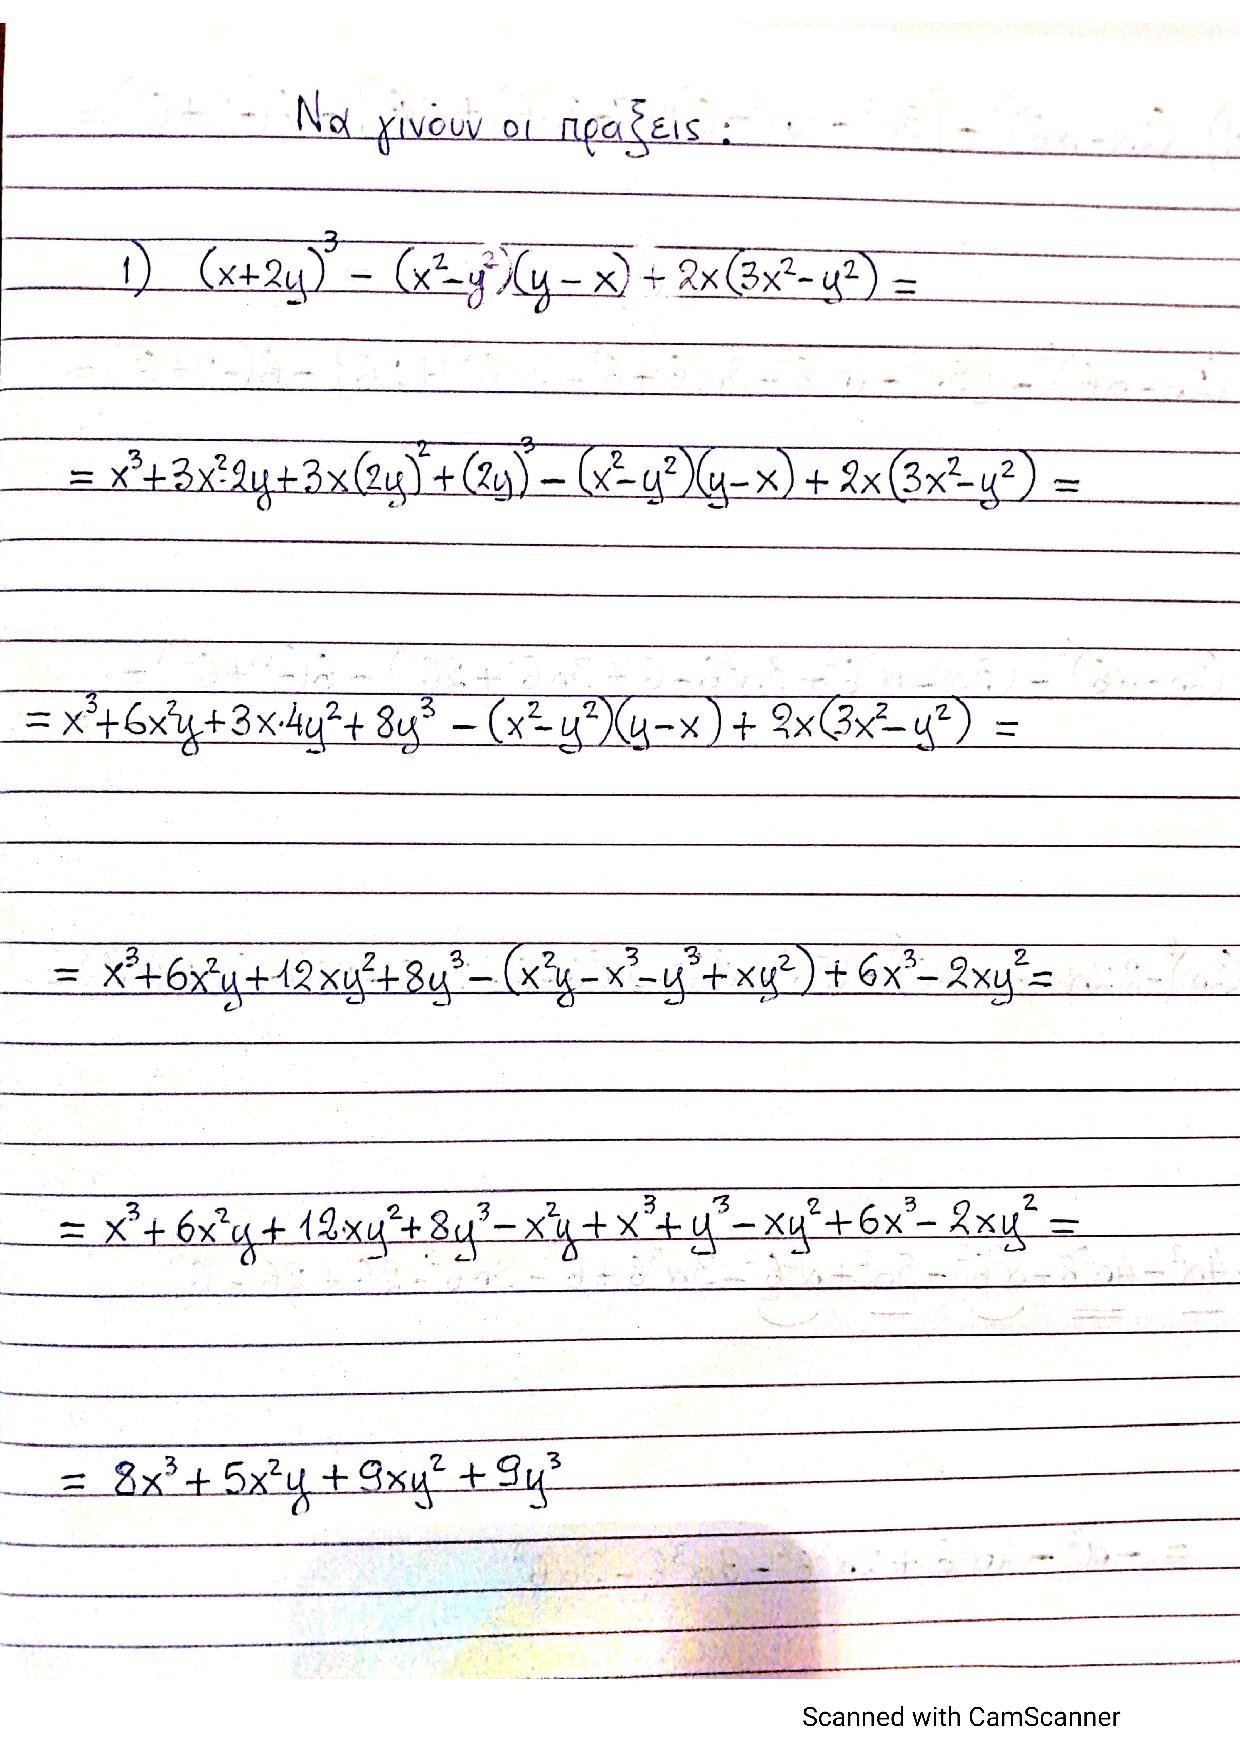 Να γίνουν οι πράξεις:
1) (x+2y)³ - (x²-y²)(y-x) + 2x(3x²-y²) =
= x³+3x²·2y+3x(2y)²+(2y)³ - (x²-y²)(y-x) + 2x(3x²-y²) =
= x³+6x²y+3x·4y²+8y³ - (x²-y²)(y-x) + 2x(3x²-y²) =
= x³+6x²y+12xy²+8y³-(x²y-x³-y³+xy²)+6x³-2xy²=
= x³+6x²y+12xy²+8y³-x²y+x³+y³-xy²+6x³-2xy² =
= 8x³+5x²y+9xy²+9y³
Scanned with CamScanner